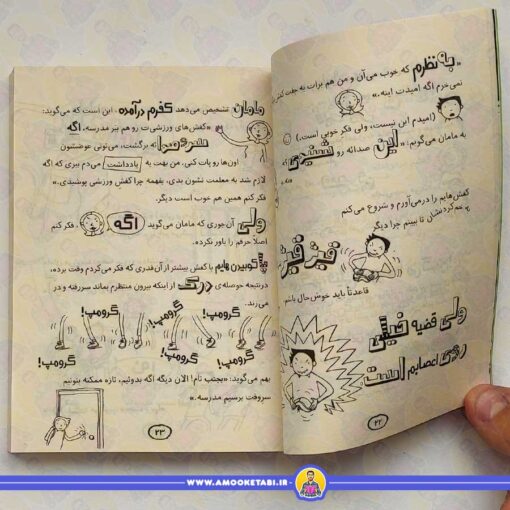 «به نظرم که خوب می‌آن و من هم برات یه جفت کفش
نمی‌خرم اگه امیدت اینه.»
(امیدم این نیست، ولی فکر خوبی است.)
به مامان می‌گویم: «این صدائه رو شنیدی
کفش‌هایم را درمی‌آورم و شروع می‌کنم
نشان تا ببینم چرا دیگر
قیژ قیژ
قاعدتاً باید خوش‌حال باشم
ولی قضیه خیلی
روی اعصابم است
۲۲
مامان تشخیص می‌دهد کفرم درآمده. این است که می‌گوید:
«کفش‌های ورزشی‌ت رو هم ببر مدرسه. اگه
سروصدائه برگشت، می‌تونی عوضشون
اون‌ها رو پات کنی. من بهت یه یادداشت می‌دم ببری که اگه
لازم شد به معلمت نشون بدی، بفهمه چرا کفش ورزشی پوشیدی.»
فکر کنم همین هم خوب است دیگر.
ولی آن‌جوری که مامان می‌گوید اگه، فکر کنم
اصلاً حرفم را باور نکرده.
کوبیدن پایم با کفش بیشتر از آن‌قدری که فکر می‌کردم وقت برده،
درنتیجه حوصله‌ی درک از اینکه بیرون منتظرم بماند سررفته و در
می‌زند.
گرومپ! گرومپ! گرومپ!
گرومپ! گرومپ! گرومپ!
بهم می‌گوید: «بجنب تام! الان دیگه اگه بدوئیم، تازه ممکنه بتونیم
سروقت برسیم مدرسه.»
۲۳
WWW.AMOOKETABI.IR